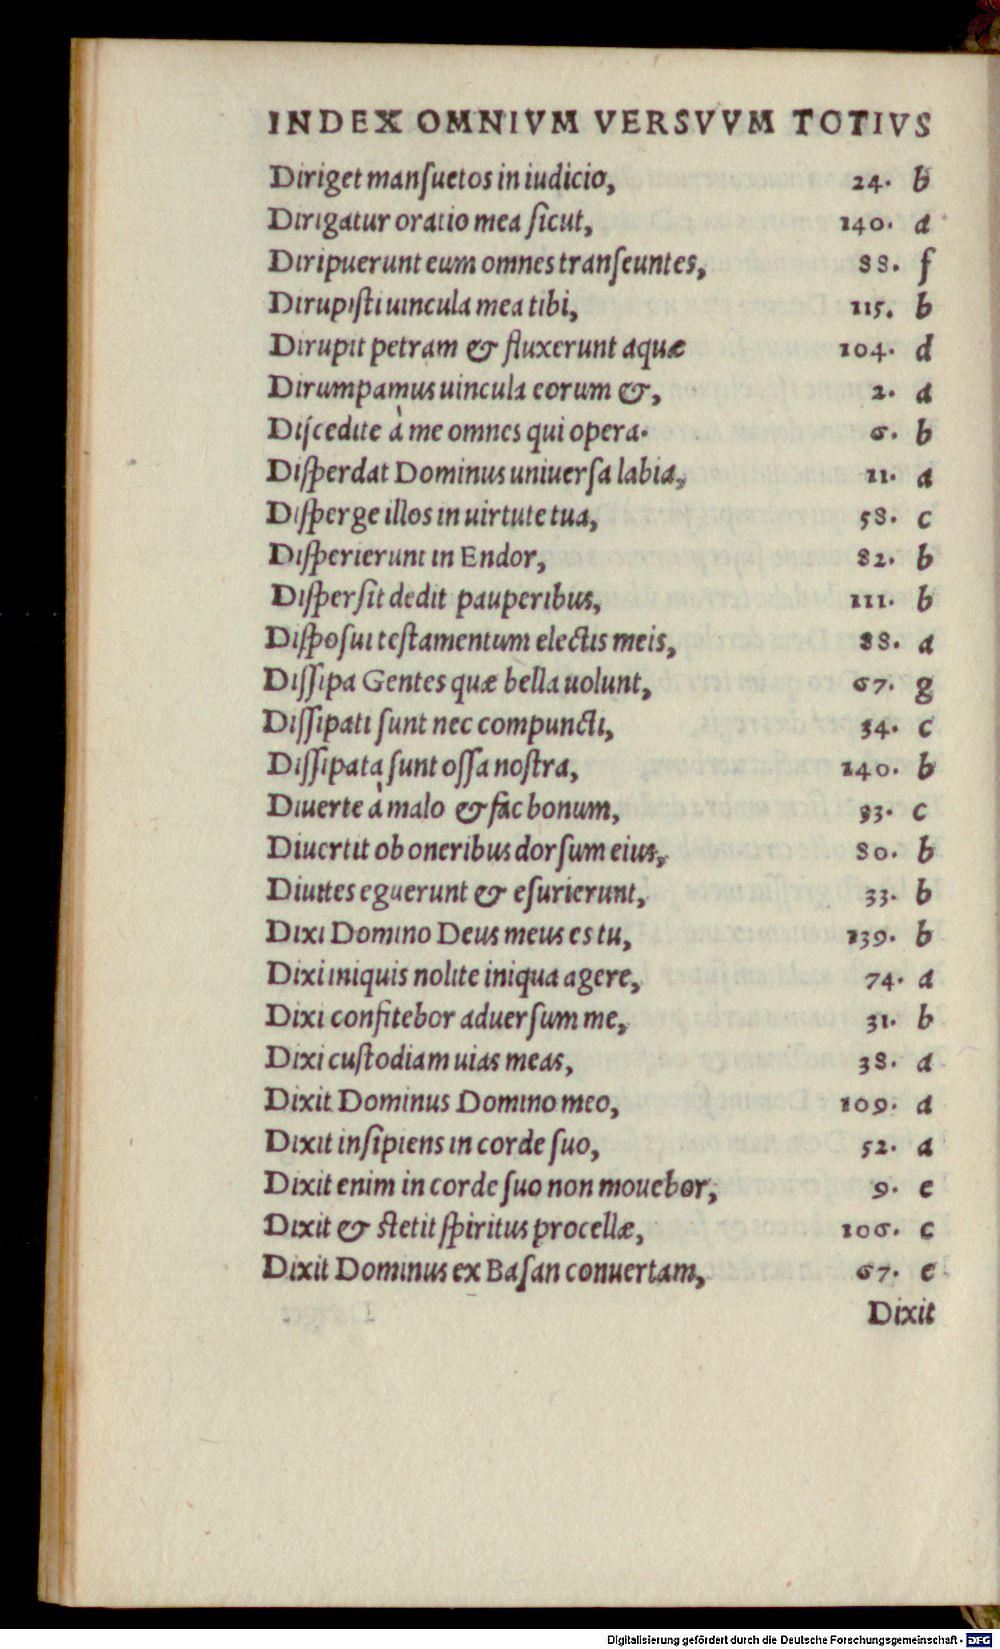 INDEX OMNIVM VERSVVM TOTIVS
Diriget manſuetos in iudicio, 24. b
Dirigatur oratio mea ſicut, 140. a
Diripuerunt eum omnes tranſeuntes, 88. f
Dirupiſti uincula mea tibi, 115. b
Dirupit petram & fluxerunt aquæ 104. d
Dirumpamus uincula eorum &, 2. a
Diſcedite à me omnes qui opera. 6. b
Diſperdat Dominus uniuerſa labia, 11. a
Diſperge illos in uirtute tua, 58. c
Diſperierunt in Endor, 82. b
Diſperſit dedit pauperibus, 111. b
Diſpoſui teſtamentum electis meis, 88. a
Diſſipa Gentes quæ bella uolunt, 67. g
Diſſipati ſunt nec compuncti, 34. c
Diſſipata ſunt oſſa noſtra, 140. b
Diuerte à malo & fac bonum, 33. c
Diuertit ob oneribus dorſum eius, 80. b
Diuites eguerunt & eſurierunt, 33. b
Dixi Domino Deus meus es tu, 139. b
Dixi iniquis nolite iniqua agere, 74. a
Dixi confitebor aduerſum me, 31. b
Dixi cuſtodiam uias meas, 38. a
Dixit Dominus Domino meo, 109. a
Dixit inſipiens in corde ſuo, 52. a
Dixit enim in corde ſuo non mouebor, 9. e
Dixit & ſtetit ſpiritus procellæ, 106. c
Dixit Dominus ex Baſan conuertam, 67. e
Dixit
Digitalisierung gefördert durch die Deutsche Forschungsgemeinschaft - DFG